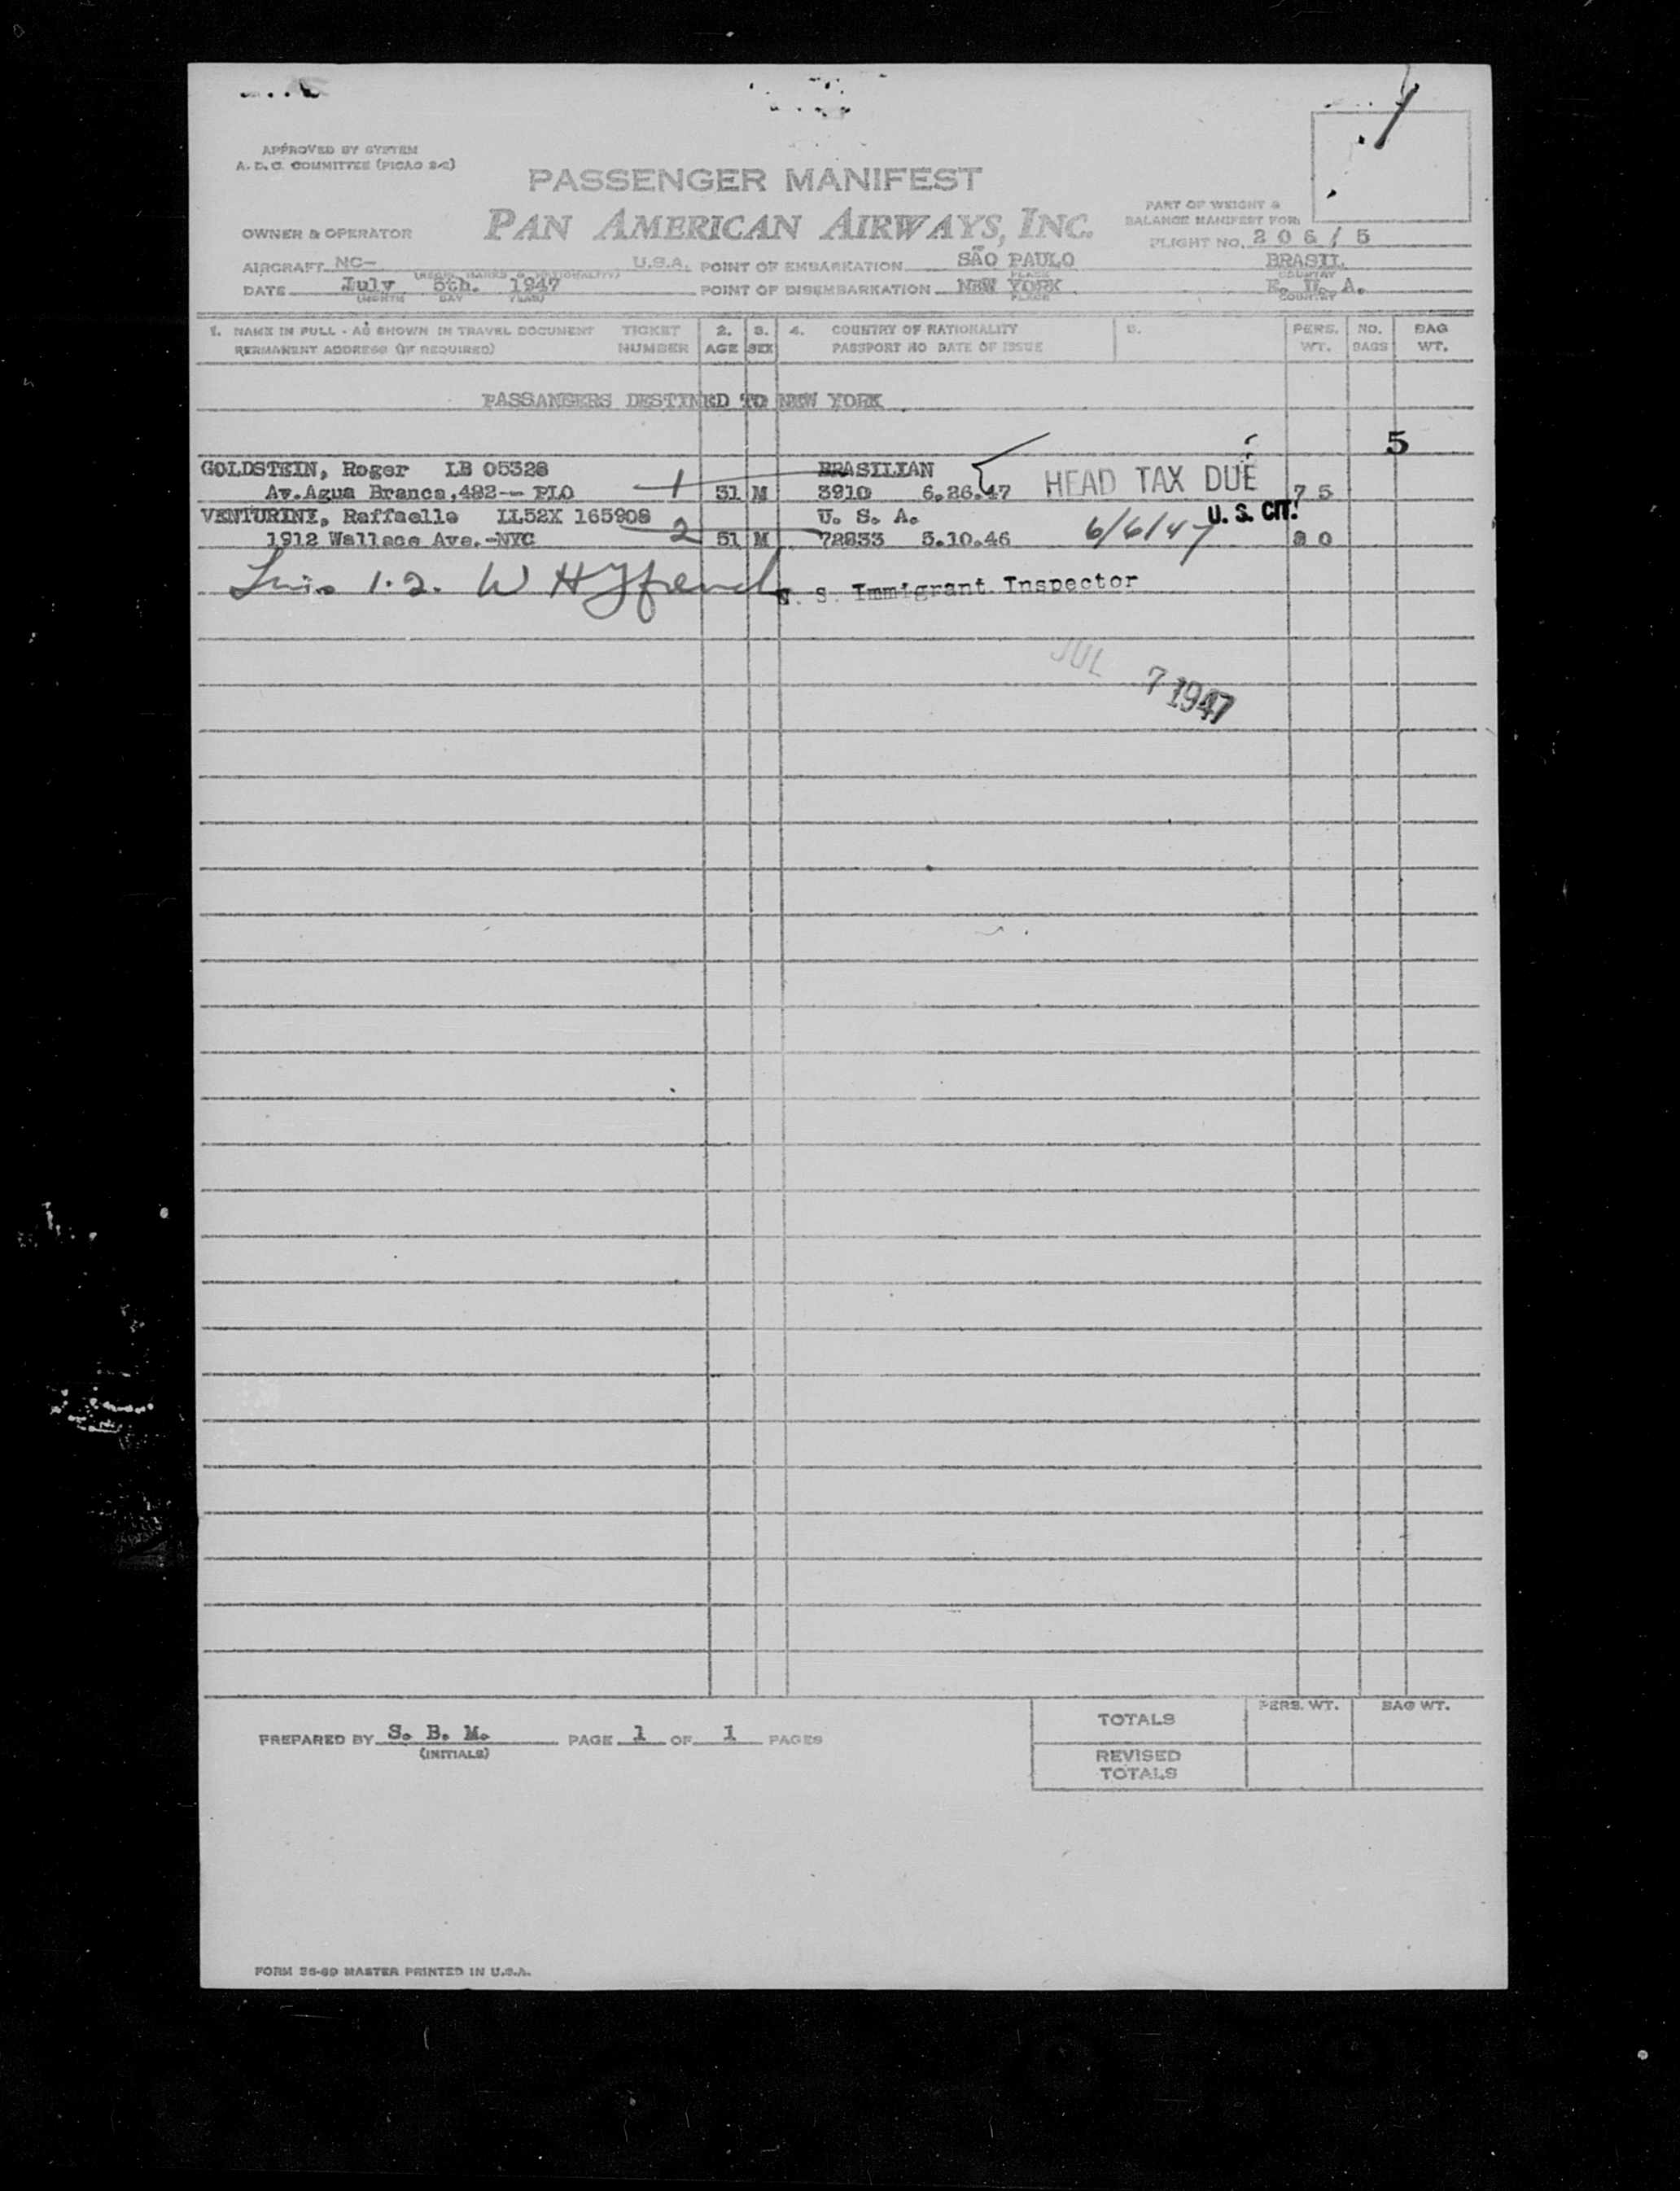 APPROVED BY SYSTEM
A. D. C. COMMITTEE (PICAO 2-2)
PASSENGER MANIFEST
PAN AMERICAN AIRWAYS, INC.
PART OF WEIGHT &
BALANCE MANIFEST FOR:
OWNER & OPERATOR
FLIGHT NO. 206/5
AIRCRAFT NC- U.S.A. POINT OF EMBARKATION SÃO PAULO BRASIL
(REGN. MARKS & NATIONALITY) PLACE COUNTRY
DATE July 5th. 1947 POINT OF DISEMBARKATION NEW YORK E. U. A.
(MONTH DAY YEAR) PLACE COUNTRY
1. NAME IN FULL - AS SHOWN IN TRAVEL DOCUMENT TICKET 2. 3. 4. COUNTRY OF NATIONALITY 5. PERS. NO. BAG
PERMANENT ADDRESS (IF REQUIRED) NUMBER AGE SEX PASSPORT NO DATE OF ISSUE WT. BAGS WT.
PASSANGERS DESTINED TO NEW YORK
5
GOLDSTEIN, Roger LB 05328 BRASILIAN HEAD TAX DUE
Av.Agua Branca,482-- PLO 1 31 M 3910 6.26.47 75
VENTURINI, Raffaelle LL52X 165908 U. S. A. U. S. CIT.
1912 Wallace Ave.-NYC 2 51 M 72833 5.10.46 6/6/47 80
1-2. W H U. S. Immigrant Inspector
JUL 7 1947
PREPARED BY S. B. M. PAGE 1 OF 1 PAGES
(INITIALS)
PERS. WT. BAG WT.
TOTALS
REVISED
TOTALS
FORM 36-69 MASTER PRINTED IN U.S.A.